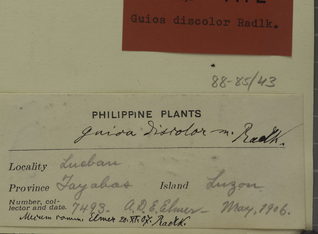 Guioa discolor Radlk.
88-85/43
PHILIPPINE PLANTS
Guioa discolor m. Radlk.
Locality Lucban
Province Tayabas Island Luzon
Number, col-
lector and date. 7493. A.D.E. Elmer - May, 1906.
Elmer 20.XII.07. Radlk.